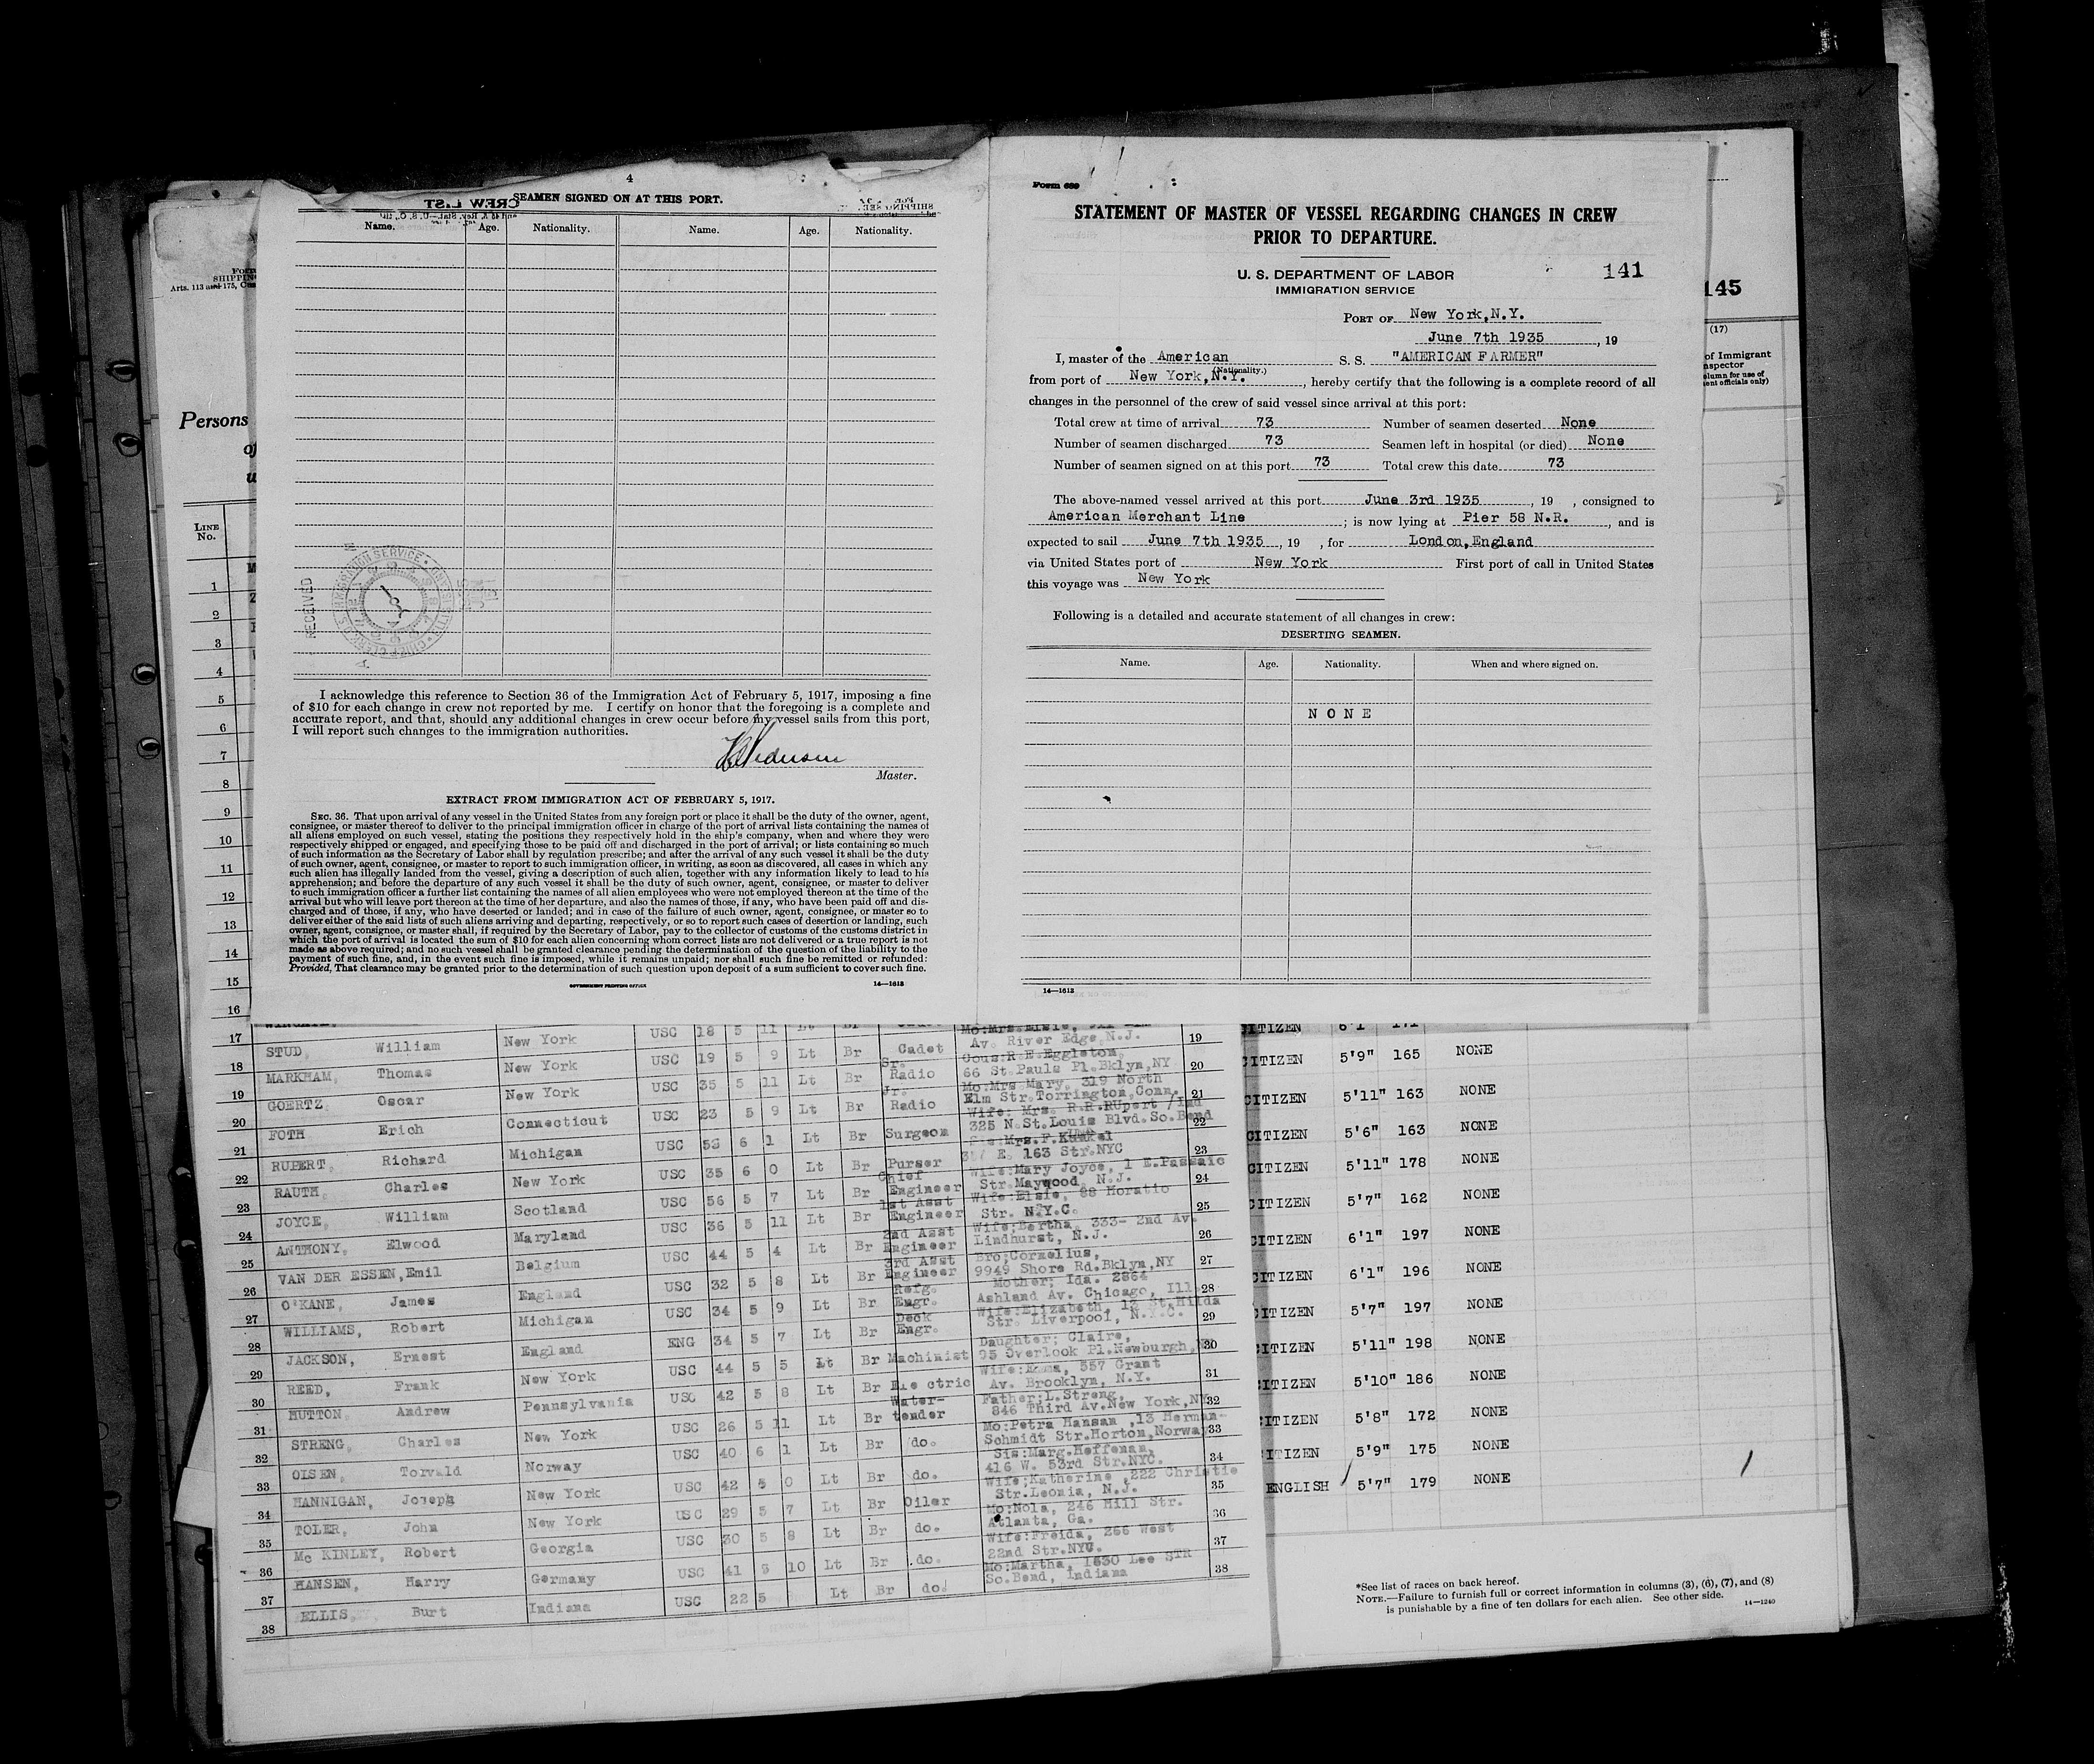 4
SEAMEN SIGNED ON AT THIS PORT.
CREW LIST
Name. Age. Nationality. Name. Age. Nationality.
RECEIVED
I acknowledge this reference to Section 36 of the Immigration Act of February 5, 1917, imposing a fine
of $10 for each change in crew not reported by me. I certify on honor that the foregoing is a complete and
accurate report, and that, should any additional changes in crew occur before my vessel sails from this port,
I will report such changes to the immigration authorities.
Master.
EXTRACT FROM IMMIGRATION ACT OF FEBRUARY 5, 1917.
SEC. 36. That upon arrival of any vessel in the United States from any foreign port or place it shall be the duty of the owner, agent,
consignee, or master thereof to deliver to the principal immigration officer in charge of the port of arrival lists containing the names of
all aliens employed on such vessel, stating the positions they respectively hold in the ship's company, when and where they were
respectively shipped or engaged, and specifying those to be paid off and discharged in the port of arrival; or lists containing so much
of such information as the Secretary of Labor shall by regulation prescribe; and after the arrival of any such vessel it shall be the duty
of such owner, agent, consignee, or master to report to such immigration officer, in writing, as soon as discovered, all cases in which any
such alien has illegally landed from the vessel, giving a description of such alien, together with any information likely to lead to his
apprehension; and before the departure of any such vessel it shall be the duty of such owner, agent, consignee, or master to deliver
to such immigration officer a further list containing the names of all alien employees who were not employed thereon at the time of the
arrival but who will leave port thereon at the time of her departure, and also the names of those, if any, who have been paid off and dis-
charged and of those, if any, who have deserted or landed; and in case of the failure of such owner, agent, consignee, or master so to
deliver either of the said lists of such aliens arriving and departing, respectively, or so to report such cases of desertion or landing, such
owner, agent, consignee, or master shall, if required by the Secretary of Labor, pay to the collector of customs of the customs district in
which the port of arrival is located the sum of $10 for each alien concerning whom correct lists are not delivered or a true report is not
made as above required; and no such vessel shall be granted clearance pending the determination of the question of the liability to the
payment of such fine, and, in the event such fine is imposed, while it remains unpaid; nor shall such fine be remitted or refunded:
Provided, That clearance may be granted prior to the determination of such question upon deposit of a sum sufficient to cover such fine.
GOVERNMENT PRINTING OFFICE 14—1613
Form 689
STATEMENT OF MASTER OF VESSEL REGARDING CHANGES IN CREW
PRIOR TO DEPARTURE.
U. S. DEPARTMENT OF LABOR
IMMIGRATION SERVICE
141
PORT OF New York,N.Y.
June 7th 1935 , 19
I, master of the American S. S. "AMERICAN FARMER"
(Nationality.)
from port of New York,N.Y. , hereby certify that the following is a complete record of all
changes in the personnel of the crew of said vessel since arrival at this port:
Total crew at time of arrival 73 Number of seamen deserted None
Number of seamen discharged 73 Seamen left in hospital (or died) None
Number of seamen signed on at this port 73 Total crew this date 73
The above-named vessel arrived at this port June 3rd 1935 , 19 , consigned to
American Merchant Line ; is now lying at Pier 58 N.R. , and is
expected to sail June 7th 1935 , 19 , for London,England
via United States port of New York First port of call in United States
this voyage was New York
Following is a detailed and accurate statement of all changes in crew:
DESERTING SEAMEN.
Name. Age. Nationality. When and where signed on.
NONE
14—1613
145
(17)
of Immigrant
nspector
Form
SHIPPIN
Arts. 113 and 175, C
Persons
LINE
No.
1
2
3
4
5
6
7
8
9
10
11
12
13
14
15
16
17 STUD, William New York USC 18 5 11 Lt Br
18 MARKHAM, Thomas New York USC 19 5 9 Lt Br Cadet Av. River Edge, N.J. 19
19 GOERTZ, Oscar New York USC 35 5 11 Lt Br Sr. Radio Cous:R.E.Eggleton, 66 St.Pauls Pl.Bklyn,NY 20
20 FOTH Erich Connecticut USC 23 5 9 Lt Br Jr. Radio Mo:Mrs Mary, 319 North Elm Str.Torrington,Conn. 21
21 RUPERT, Richard Michigan USC 53 6 1 Lt Br Surgeon Wife: Mrs. R.R.RUpert /Ind 325 N.St.Louis Blvd.So.Bend 22
22 RAUTH, Charles New York USC 35 6 0 Lt Br Purser E. 163 Str.NYC 23
23 JOYCE, William Scotland USC 56 5 7 Lt Br Chief Engineer Wife:Mary Joyce, 1 E.Passaic Str.Maywood, N.J. 24
24 ANTHONY, Elwood Maryland USC 36 5 11 Lt Br 1st Asst Engineer Wife:Elsie, 88 Horatio Str. N.Y.C. 25
25 VAN DER ESSEN,Emil Belgium USC 44 5 4 Lt Br 2nd Asst Engineer Wife:Bertha, 333- 2nd Av. Lindhurst, N.J. 26
26 O'KANE, James England USC 32 5 8 Lt Br 3rd Asst Engineer Bro;Cornelius, 9949 Shore Rd.Bklyn,NY 27
27 WILLIAMS, Robert Michigan USC 34 5 9 Lt Br Refg. Engr. Mother; Ida. 2864 Ashland Av. Chicago, Ill. 28
28 JACKSON, Ernest England ENG 34 5 7 Lt Br Deck Engr. Wife:Elizabeth, 12 St.Hilda Str. Liverpool, N.Y.C. 29
29 REED, Frank New York USC 44 5 5 Lt Br Machinist Daughter; Claire, 95 Overlook Pl.Newburgh, 30
30 HUTTON, Andrew Pennsylvania USC 42 5 8 Lt Br Ele ctric Wife:Emma, 557 Grant Av. Brooklyn, N.Y. 31
31 STRENG, Charles New York USC 26 5 11 Lt Br Water-tender Father:L.Streng, 846 Third Av.New York,NY 32
32 OLSEN, Torvald Norway USC 40 6 1 Lt Br do. Mo:Petra Hansan ,13 Herman- Schmidt Str.Horton,Norway 33
33 HANNIGAN, Joseph New York USC 42 5 0 Lt Br do. Sis:Marg.Heffenan, 416 W. 53rd Str.NYC. 34
34 TOLER, John New York USC 29 5 7 Lt Br Oiler Wife;Katherine ,222 Christie Str.Leonia, N.J. 35
35 Mc KINLEY, Robert Georgia USC 30 5 8 Lt Br do. Mo:Nola, 246 Hill Str. Atlanta, Ga. 36
36 HANSEN, Harry Germany USC 41 5 10 Lt Br do. Wife:Freida, 266 West 22nd Str.NYC. 37
37 ELLIS, Burt Indiana USC 22 5 Lt Br do. Mo:Martha, 1630 Lee STR So.Bend, Indiana 38
38
CITIZEN 6'1"
CITIZEN 5'9" 165 NONE
CITIZEN 5'11" 163 NONE
CITIZEN 5'6" 163 NONE
CITIZEN 5'11" 178 NONE
CITIZEN 5'7" 162 NONE
CITIZEN 6'1" 197 NONE
CITIZEN 6'1" 196 NONE
CITIZEN 5'7" 197 NONE
CITIZEN 5'11" 198 NONE
CITIZEN 5'10" 186 NONE
CITIZEN 5'8" 172 NONE
CITIZEN 5'9" 175 NONE
ENGLISH 5'7" 179 NONE
*See list of races on back hereof.
NOTE.—Failure to furnish full or correct information in columns (3), (6), (7), and (8)
is punishable by a fine of ten dollars for each alien. See other side.
14—1240